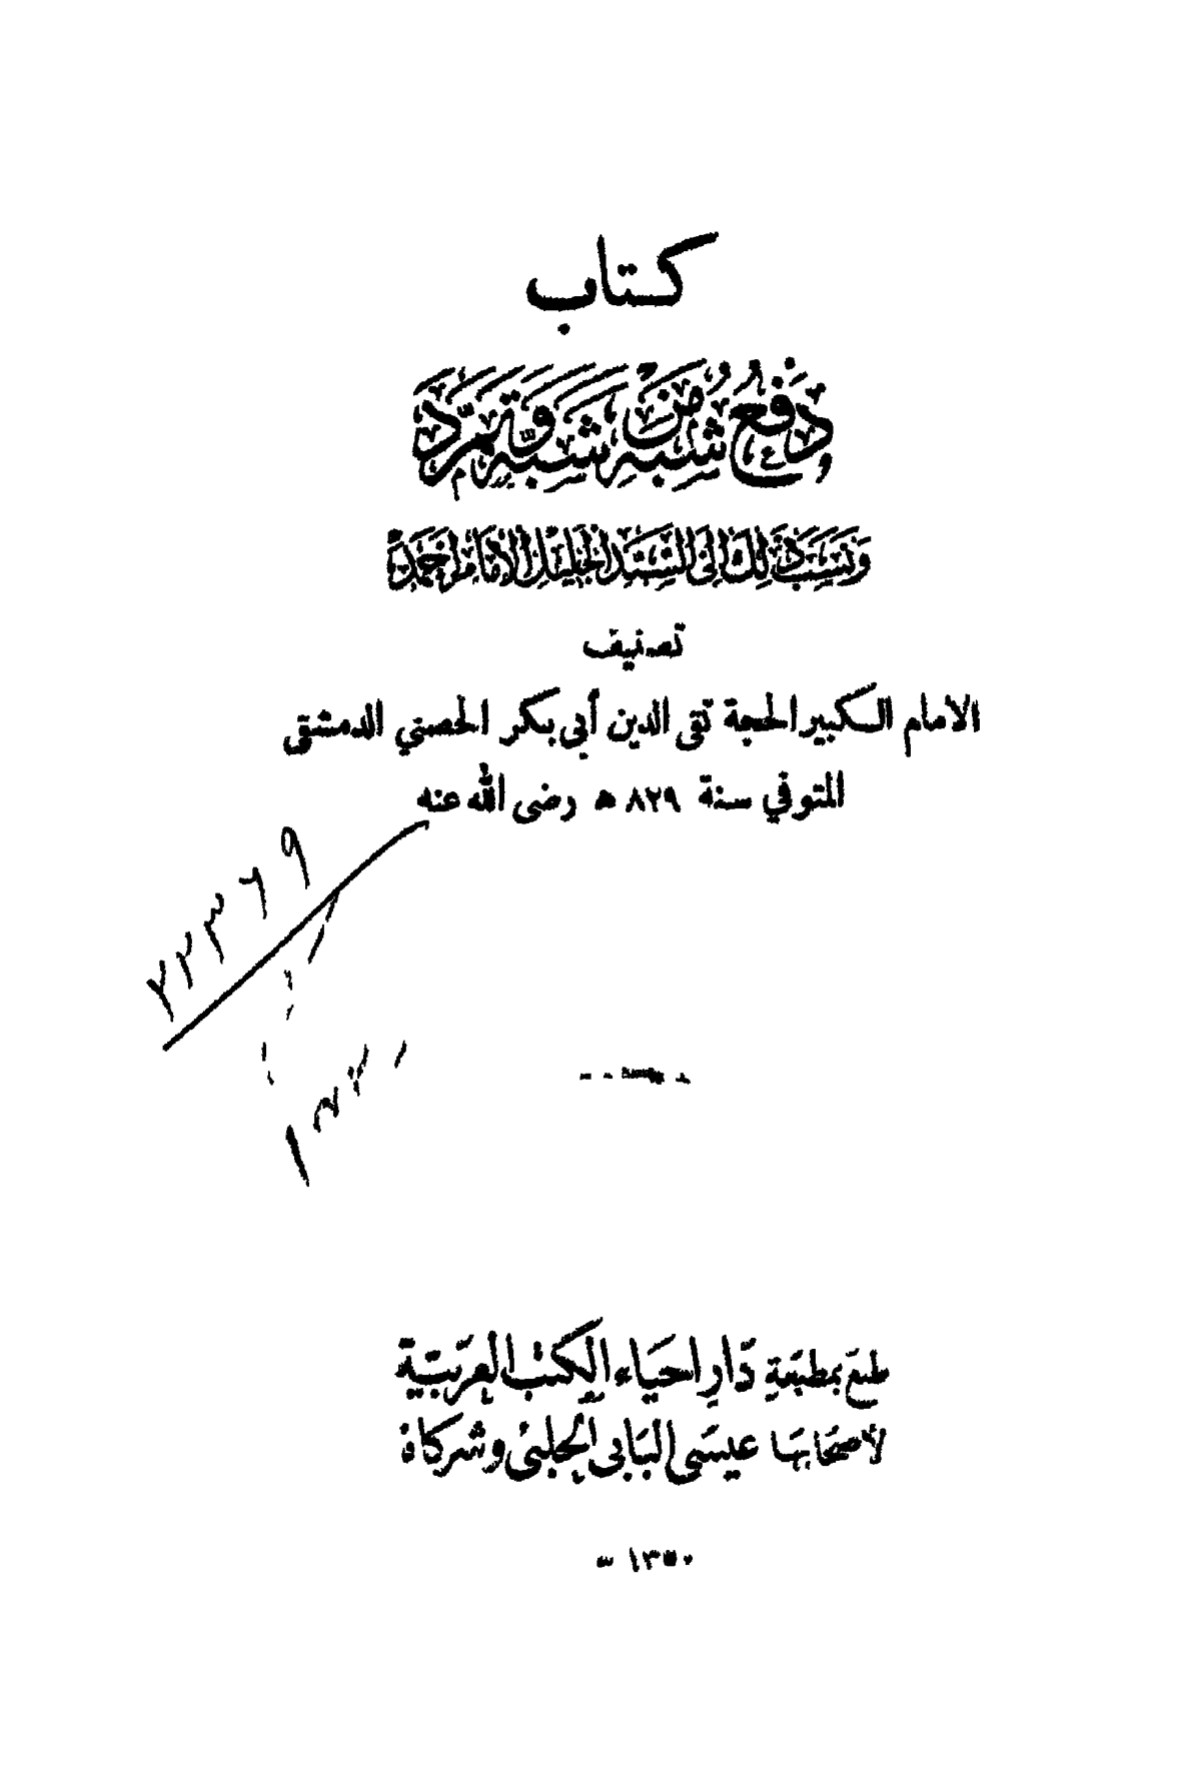 كتاب
دفع شبه من شبه وتمرد
ونسب ذلك إلى السيد الجليل الإمام أحمد
تصنيف
الامام الكبير الحجة تقي الدين أبي بكر الحصني الدمشقي
المتوفي سنة ٨٢٩ ه رضى الله عنه
٢٢٣٦٩
طبع بمطبعة دار احياء الكتب العربية
لأصحابها عيسى البابي الحلبي وشركاه
١٣٥٠